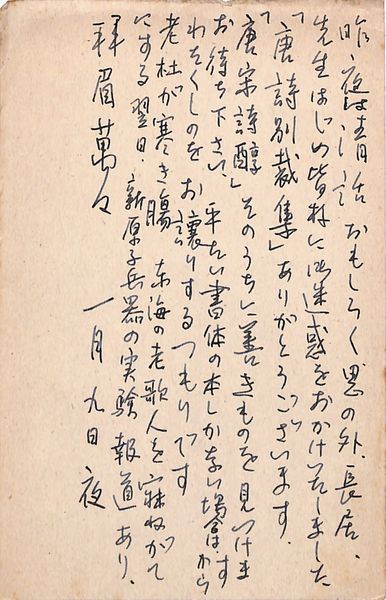 昨夜は清話おもしろく思の外、長居、
先生はじめ皆様に御迷惑をおかけいたしました
「唐詩別裁集」ありがとうございます。
「唐宋詩醇」そのうちに善きものを見つけますから
お待ち下さい、平たい書体の本しかない場合は、
わたくしのをお譲りするつもりです
老杜が寒き腸 東海の老歌人を寐ねがて
にする翌日、新原子兵器の実験報道あり、
拝眉萬々 一月九日夜